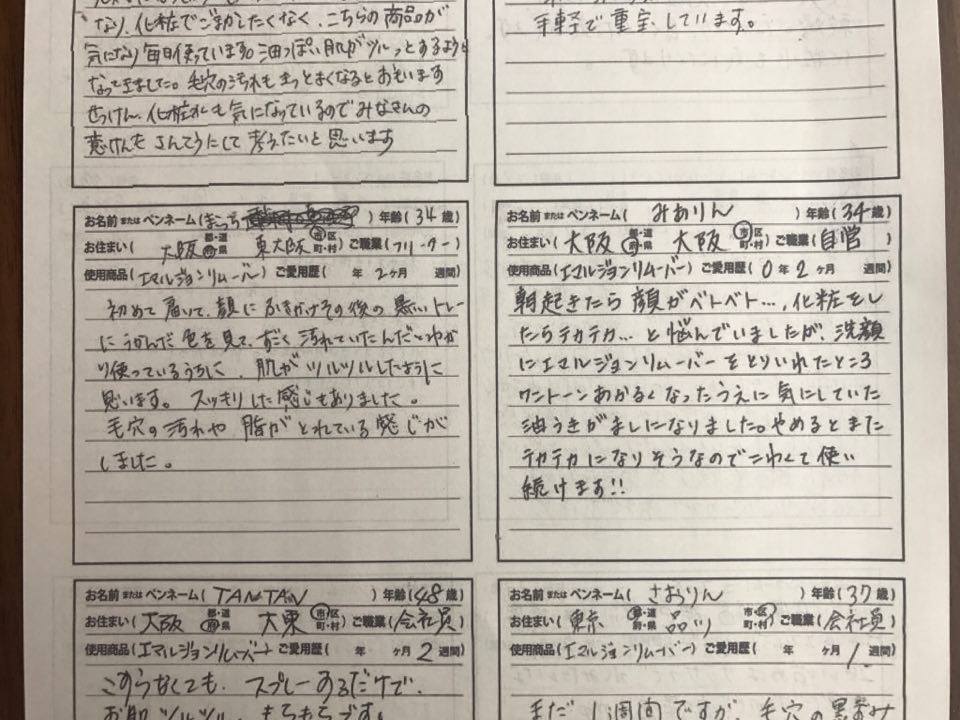 なり、化粧でごまかしたくなく、こちらの商品が
気になり毎日使っています。油っぽい肌がツルっとするように
なってきました。毛穴の汚れもきっとよくなるとおもいます
せっけん、化粧水も気になっているのでみなさんの
意けんをさんこうにして考えたいと思います
手軽で重宝しています。
お名前またはペンネーム(まこっち ) 年齢(34歳)
お住まい(大阪 都・道府県 東大阪 市・区町・村) ご職業(フリーター)
使用商品(エマルジョンリムーバー) ご愛用歴( 年 2ヶ月 週間)
初めて届いて、顔にふきかけその後の黒いトレー
にうかんだ色を見て、すごく汚れていたんだとわか
り使っているうちに、肌がツルツルしたように
思います。スッキリした感じもありました。
毛穴の汚れや脂がとれている感じが
しました。
お名前またはペンネーム(みありん ) 年齢(34歳)
お住まい(大阪 都・道府県 大阪 市・区町・村) ご職業(自営)
使用商品(エマルジョンリムーバー) ご愛用歴(0年2ヶ月 週間)
朝起きたら顔がベトベト…、化粧をし
たらテカテカ…と悩んでいましたが、洗顔
にエマルジョンリムーバーをとりいれたところ
ワントーンあかるくなったうえに気にしていた
油うきがましになりました。やめるとまた
テカテカになりそうなのでこわくて使い
続けます!!
お名前またはペンネーム(TANTAN ) 年齢(48歳)
お住まい(大阪 都・道府県 大東 市・区町・村) ご職業(会社員)
使用商品(エマルジョンリムーバー) ご愛用歴( 年 ヶ月 2週間)
こすらなくても、スプレーするだけで、
お肌ツルツル、もちもちです。
お名前またはペンネーム(さおりん ) 年齢(37歳)
お住まい(東京 都・道府県 品川 市・区町・村) ご職業(会社員)
使用商品(エマルジョンリムーバー) ご愛用歴( 年 ヶ月 1週間)
まだ1週間ですが、毛穴の黒ずみ